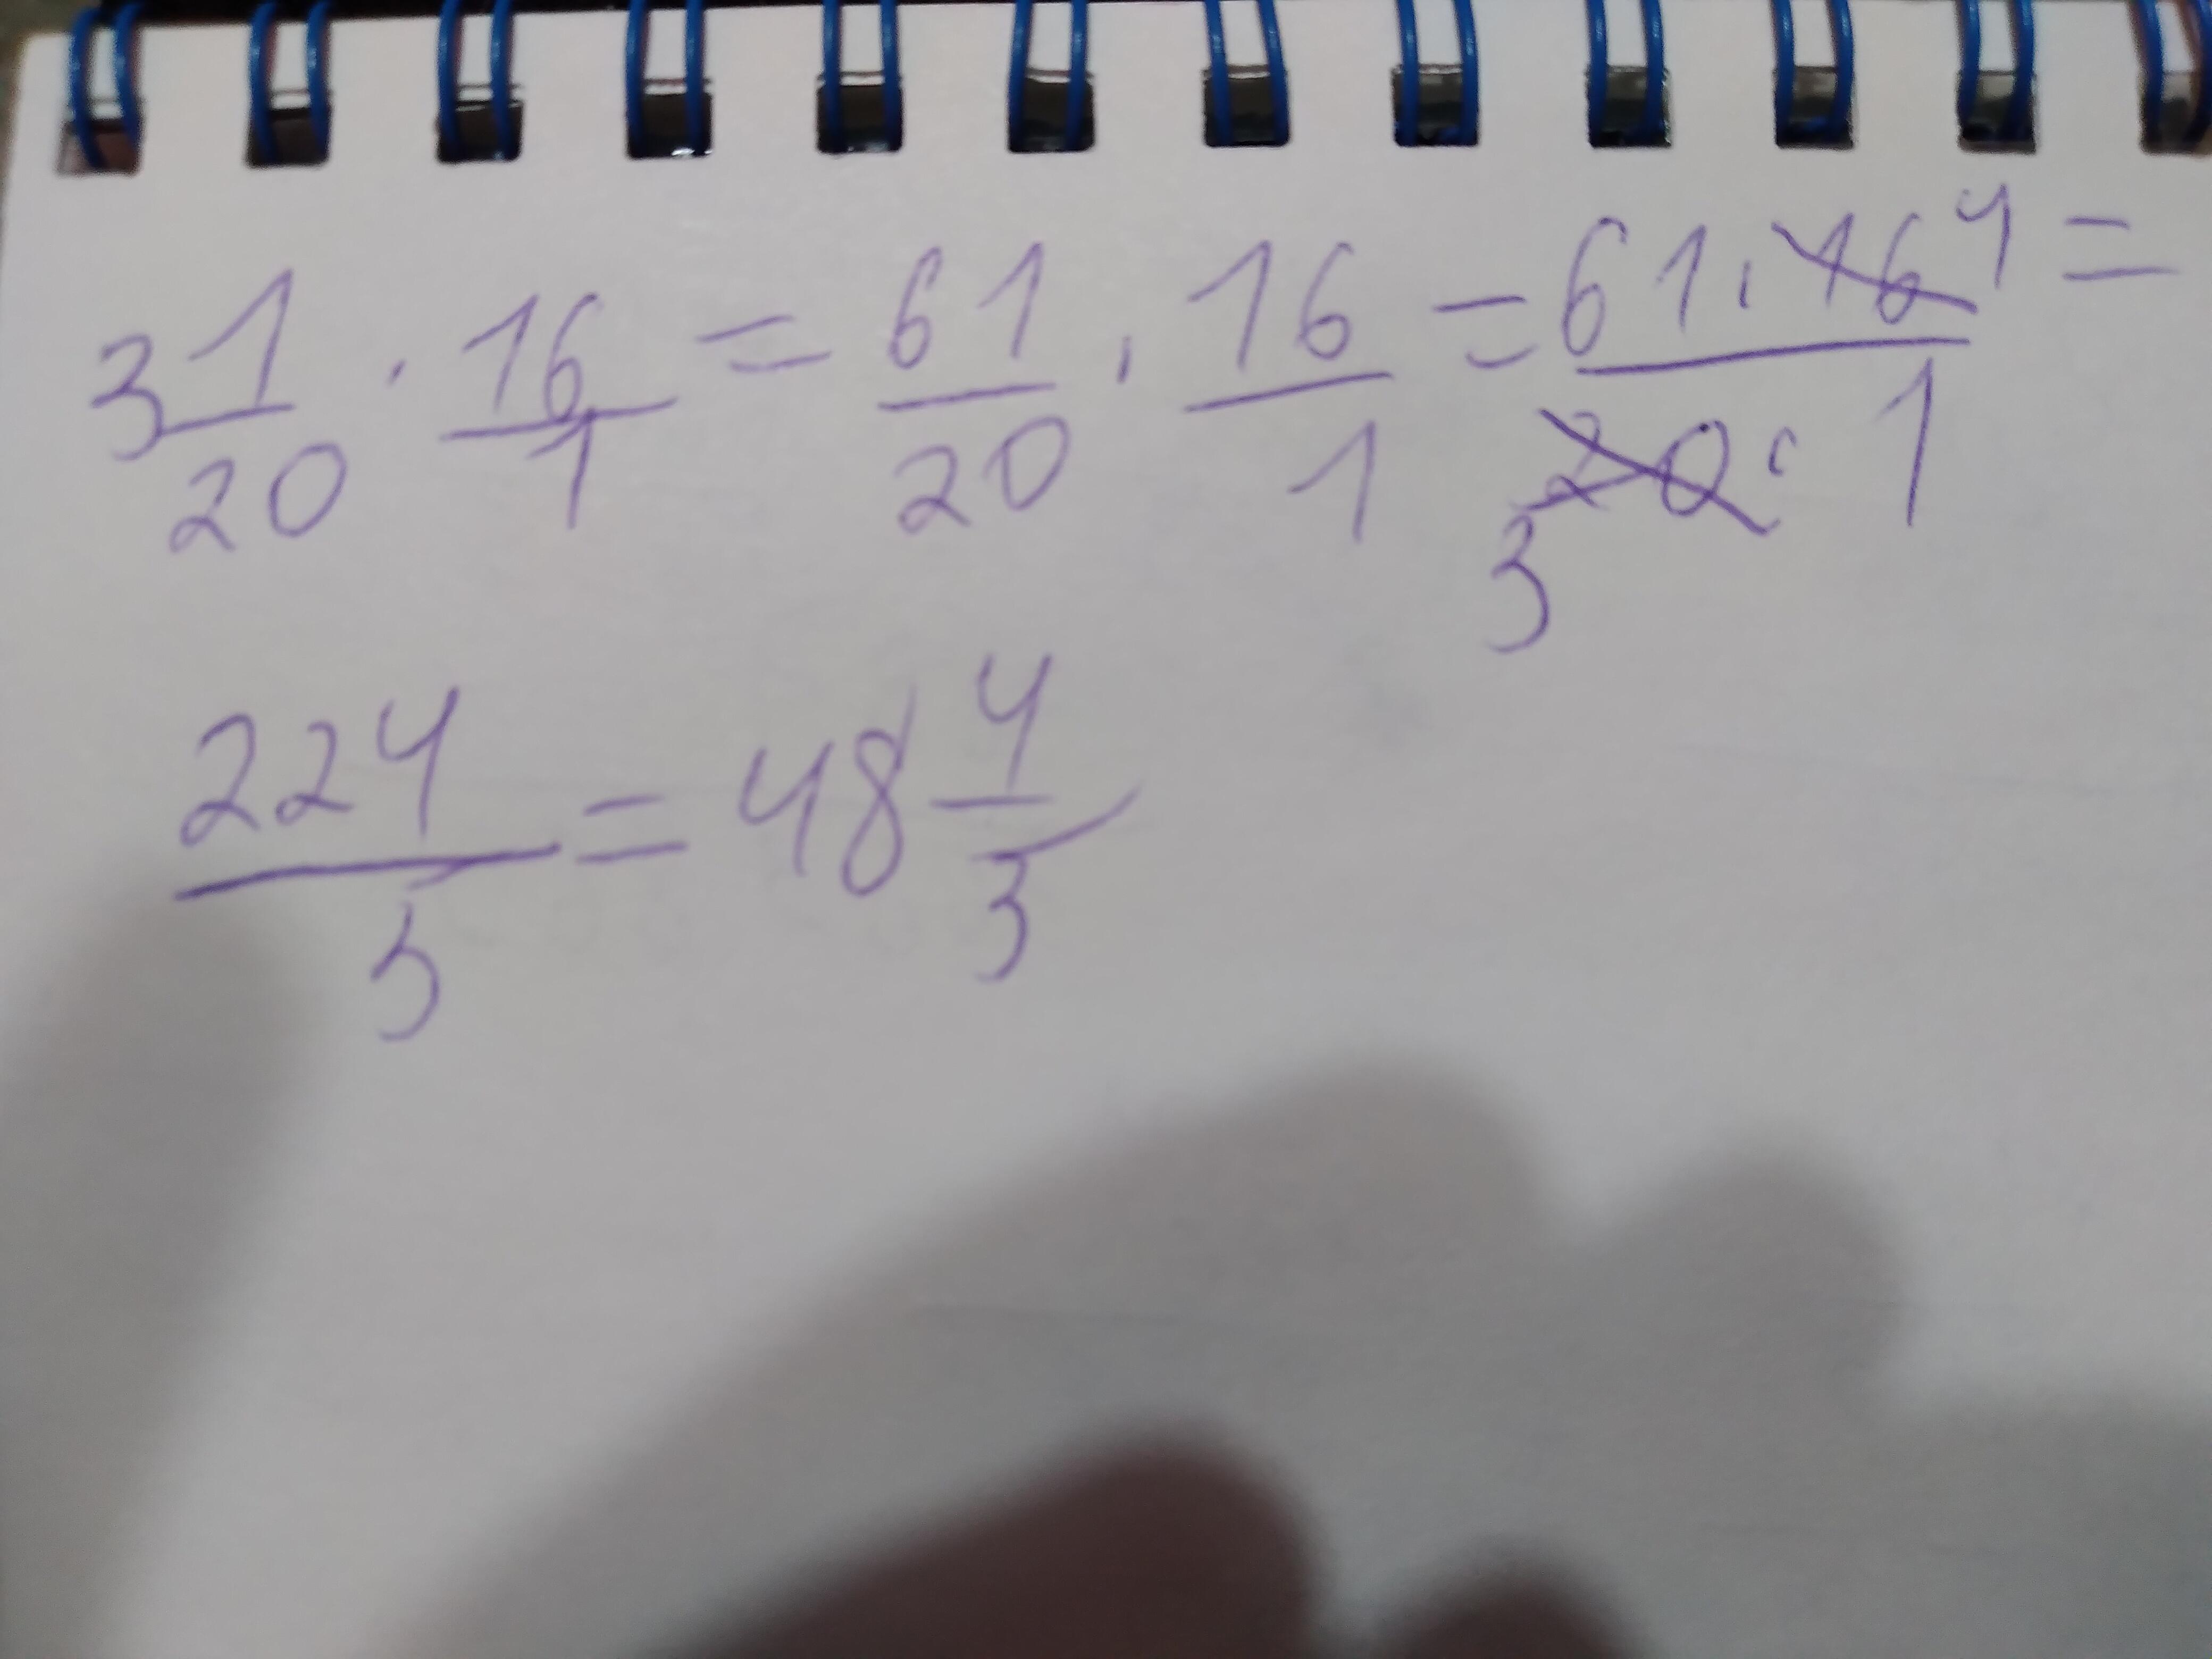 3 1/20 · 16/1 = 61/20 · 16/1 = 61 · 16 4 / 20 · 1 5 =
224/5 = 48 4/5